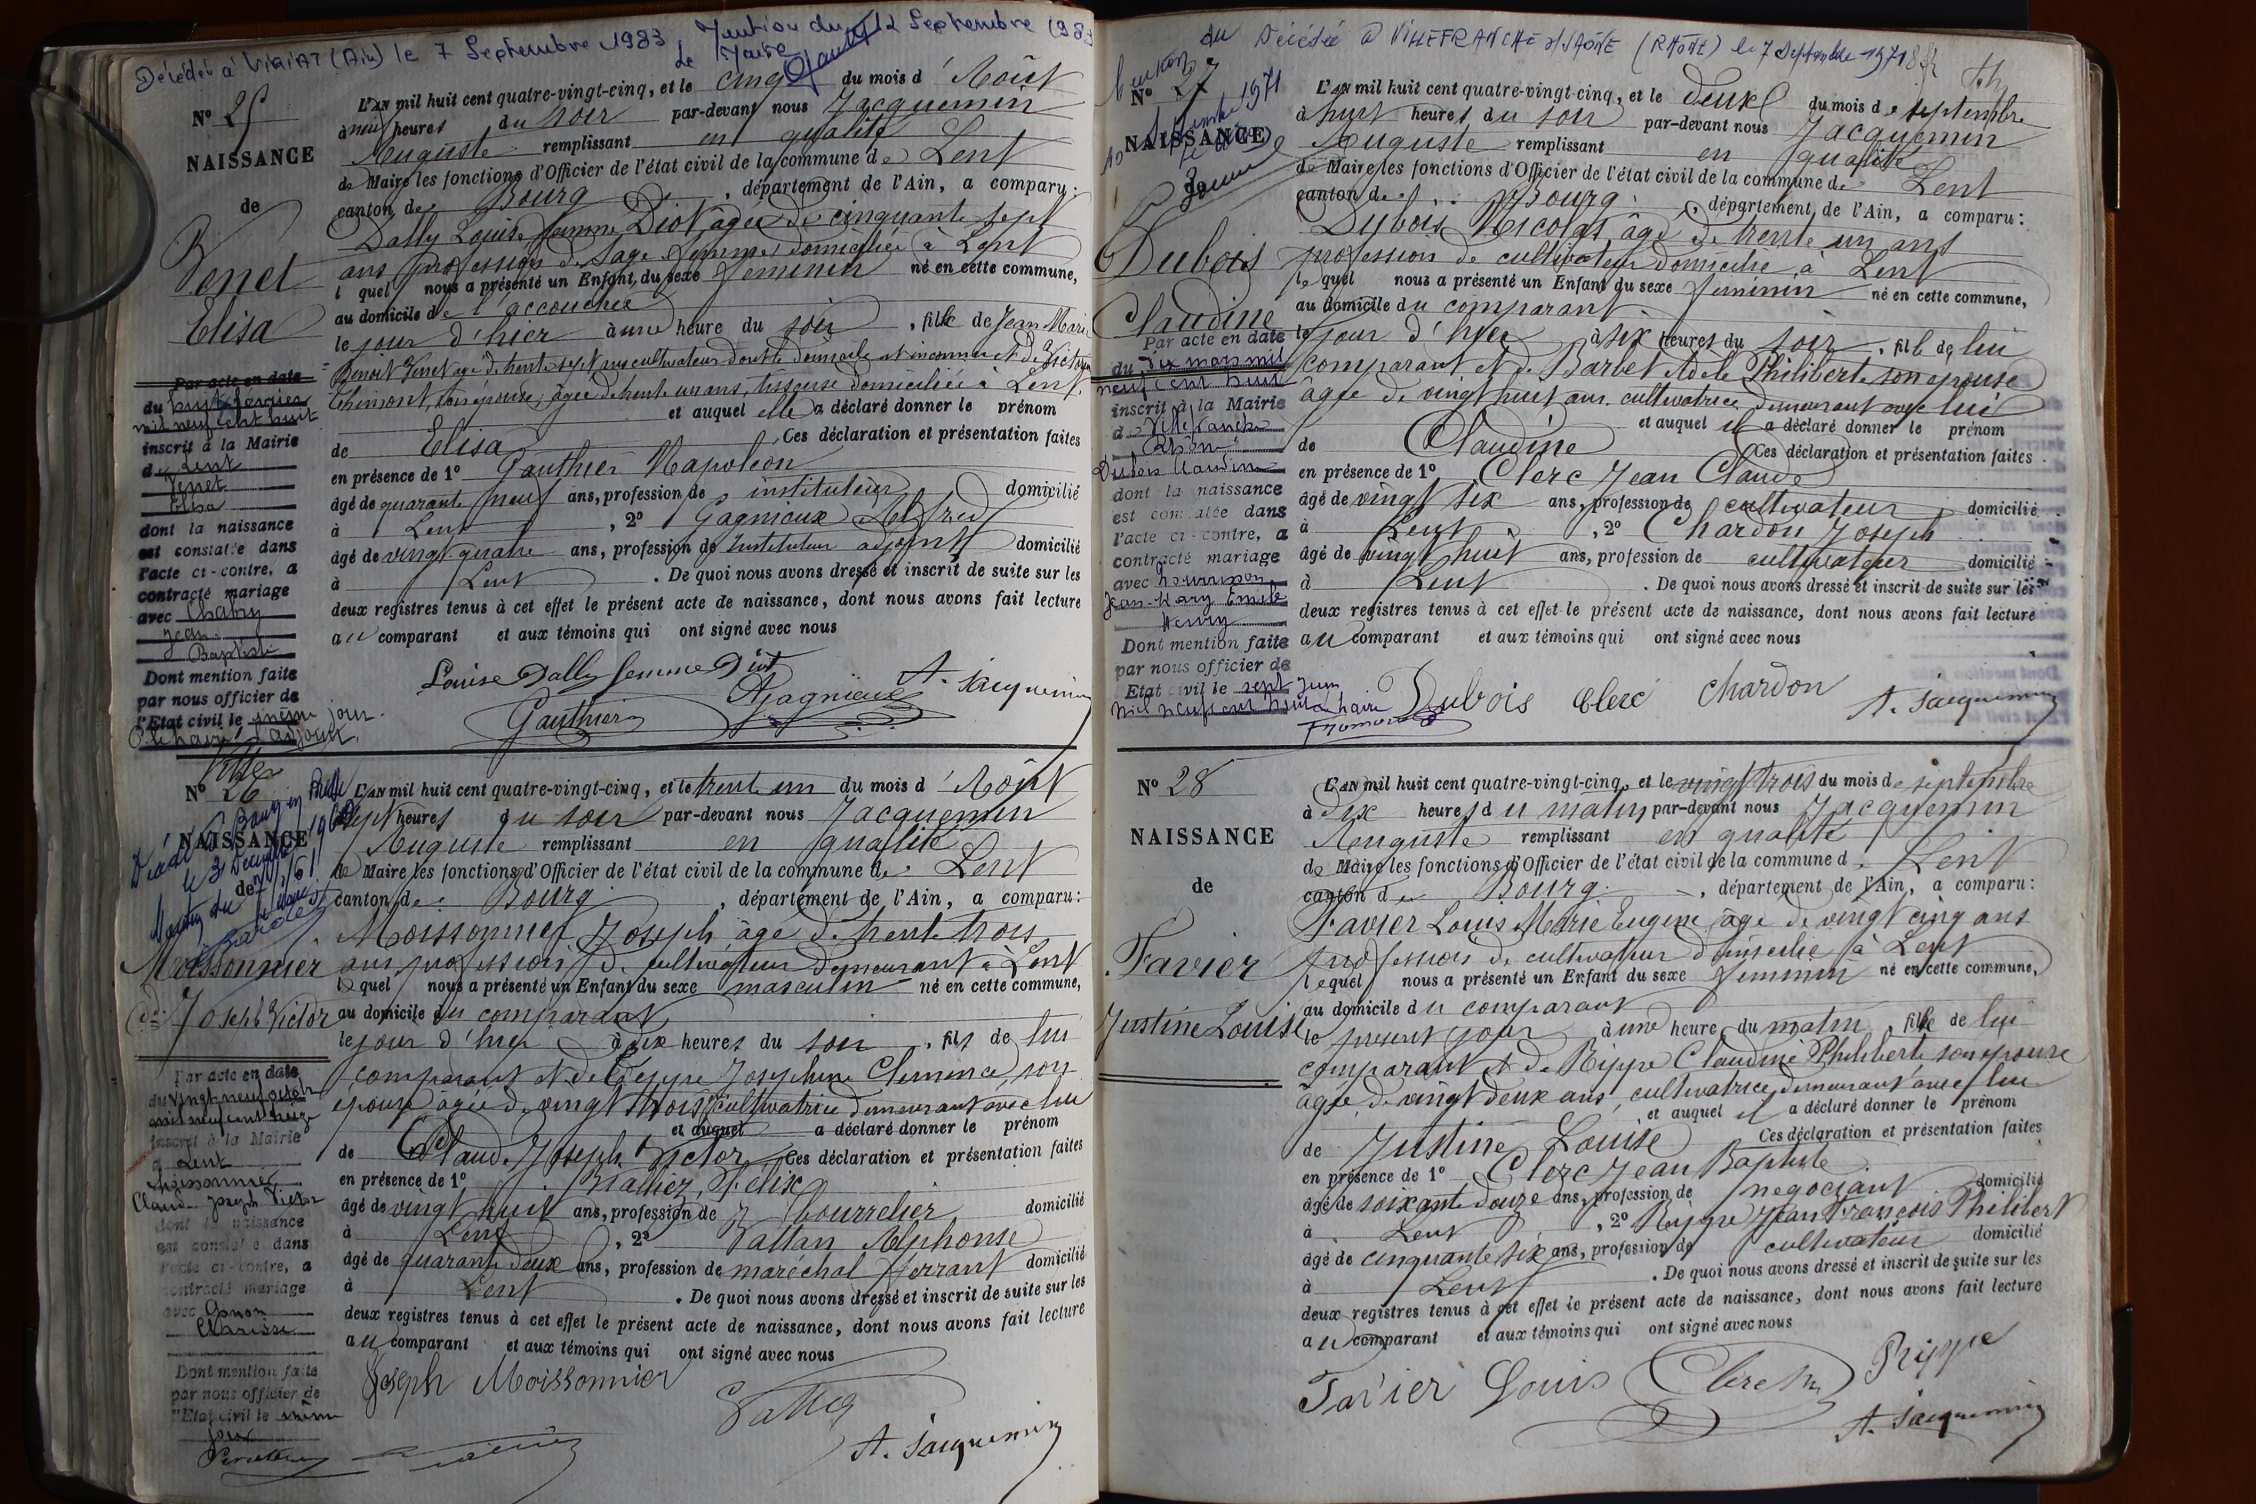 Décédée à VIRIAT (Ain) le 7 Septembre 1983 Mention du 12 Septembre 1983
Le Maire
N° 25
NAISSANCE
de
Venet
Elisa
Par acte en date
du huit février
mil neuf cent huit
inscrit à la Mairie
de Lent
Venet
Elisa
dont la naissance
est constatée dans
l'acte ci-contre, a
contracté mariage
avec Chabry
Jean
Baptiste
Dont mention faite
par nous officier de
l'Etat civil le même jour
L'AN mil huit cent quatre-vingt-cinq, et le cinq du mois d'Août
à neuf heures du soir par-devant nous Jacquemin
Auguste remplissant en qualité
de Maire les fonctions d'Officier de l'état civil de la commune de Lent
canton de Bourg, département de l'Ain, a comparu:
Dally Louise femme Diot âgée de cinquante sept
ans profession de Sage femme domiciliée à Lent
l quel nous a présenté un Enfant, du sexe féminin né en cette commune,
au domicile de l'accouchée
le jour d'hier à une heure du soir, fille de Jean Marie
Benoit Venet agé de trente sept ans cultivateur dont le domicile est inconnu et de
son épouse, âgée de trente un ans, tisseuse domiciliée à Lent
et auquel elle a déclaré donner le prénom
de Elisa Ces déclaration et présentation faites
en présence de 1° Gauthier Napoléon
âgé de quarante neuf ans, profession de instituteur domicilié
à Lent, 2° Gagnieux Alfred
âgé de vingt quatre ans, profession de Instituteur adjoint domicilié
à Lent. De quoi nous avons dressé et inscrit de suite sur les
deux registres tenus à cet effet le présent acte de naissance, dont nous avons fait lecture
au comparant et aux témoins qui ont signé avec nous
Louise Dally femme Diot
Gauthier Gagnieux A. Jacquemin
N° 26
NAISSANCE
de
Décédé à Bourg en Bresse
le 3 Décembre 1960
Moissonnier
Joseph Victor
Par acte en date
du vingt neuf
mil neuf cent
inscrit à la Mairie
d Lent
Moissonnier
Claude Joseph Victor
dont la naissance
est constatée dans
l'acte ci-contre, a
contracté mariage
avec
Clarisse
Dont mention faite
par nous officier de
l'Etat civil le même
jour
L'AN mil huit cent quatre-vingt-cinq, et le trente un du mois d'Août
à sept heures du soir par-devant nous Jacquemin
Auguste remplissant en qualité
de Maire les fonctions d'Officier de l'état civil de la commune de Lent
canton de Bourg, département de l'Ain, a comparu:
Moissonnier Joseph âgé de trente trois
ans profession de cultivateur demeurant à Lent
lequel nous a présenté un Enfant du sexe masculin né en cette commune,
au domicile du comparant
le jour d'hier à dix heures du soir, fils de lui
comparant et de Joséphine Clémence, son
épouse agée de vingt trois cultivatrice demeurant avec lui
et auquel a déclaré donner le prénom
de Claude Joseph Victor Ces déclaration et présentation faites
en présence de 1° Félix
âgé de vingt huit ans, profession de bourrelier domicilié
à Lent, 2° Alphonse
âgé de quarante deux ans, profession de maréchal ferrant domicilié
à Lent. De quoi nous avons dressé et inscrit de suite sur les
deux registres tenus à cet effet le présent acte de naissance, dont nous avons fait lecture
au comparant et aux témoins qui ont signé avec nous
Joseph Moissonnier
A. Jacquemin
Décédée à VILLEFRANCHE S/SAÔNE (RHÔNE) le 7 Septembre 1971
N° 27
NAISSANCE
Dubois
Claudine
Par acte en date
du six mars mil
neuf cent huit
inscrit à la Mairie
d Villefranche
Rhône
Dubois Claudine
dont la naissance
est constatée dans
l'acte ci-contre, a
contracté mariage
avec
Jean-Mary Emile
Henry
Dont mention faite
par nous officier de
Etat civil le sept juin
mil neuf cent huit
L'AN mil huit cent quatre-vingt-cinq, et le deux du mois de septembre
à huit heures du soir par-devant nous Jacquemin
Auguste remplissant en qualité
de Maire les fonctions d'Officier de l'état civil de la commune de Lent
canton de Bourg, département de l'Ain, a comparu:
Dubois Nicolas âgé de trente un ans
profession de cultivateur domicilié à Lent
lequel nous a présenté un Enfant du sexe féminin né en cette commune,
au domicile du comparant
le jour d'hier à six heures du soir, fille de lui
comparant et de Barbet Adèle Philiberte son épouse
âgée de vingt huit ans cultivatrice demeurant avec lui
et auquel il a déclaré donner le prénom
de Claudine Ces déclaration et présentation faites
en présence de 1° Clerc Jean Claude
âgé de vingt six ans, profession de cultivateur domicilié
à Lent, 2° Chardon Joseph
âgé de vingt huit ans, profession de cultivateur domicilié
à Lent. De quoi nous avons dressé et inscrit de suite sur les
deux registres tenus à cet effet le présent acte de naissance, dont nous avons fait lecture
au comparant et aux témoins qui ont signé avec nous
Dubois Clerc Chardon A. Jacquemin
N° 28
NAISSANCE
de
Favier
Justine Louise
L'AN mil huit cent quatre-vingt-cinq, et le vingt trois du mois de septembre
à dix heures du matin par-devant nous Jacquemin
Auguste remplissant en qualité
de Maire les fonctions d'Officier de l'état civil de la commune d Lent
canton de Bourg, département de l'Ain, a comparu:
Favier Louis Marie Eugène âgé de vingt cinq ans
profession de cultivateur domicilié à Lent
lequel nous a présenté un Enfant du sexe féminin né en cette commune,
au domicile du comparant
le présent jour à une heure du matin, fille de lui
comparant et de Rippe Claudine Philiberte son épouse
âgée de vingt deux ans, cultivatrice, demeurant avec lui
et auquel il a déclaré donner le prénom
de Justine Louise Ces déclaration et présentation faites
en présence de 1° Clerc Jean Baptiste
âgé de soixante douze ans, profession de négociant domicilié
à Lent, 2° Rippe Jean François Philibert
âgé de cinquante six ans, profession de cultivateur domicilié
à Lent. De quoi nous avons dressé et inscrit de suite sur les
deux registres tenus à cet effet le présent acte de naissance, dont nous avons fait lecture
au comparant et aux témoins qui ont signé avec nous
Favier Louis Clerc Rippe
A. Jacquemin